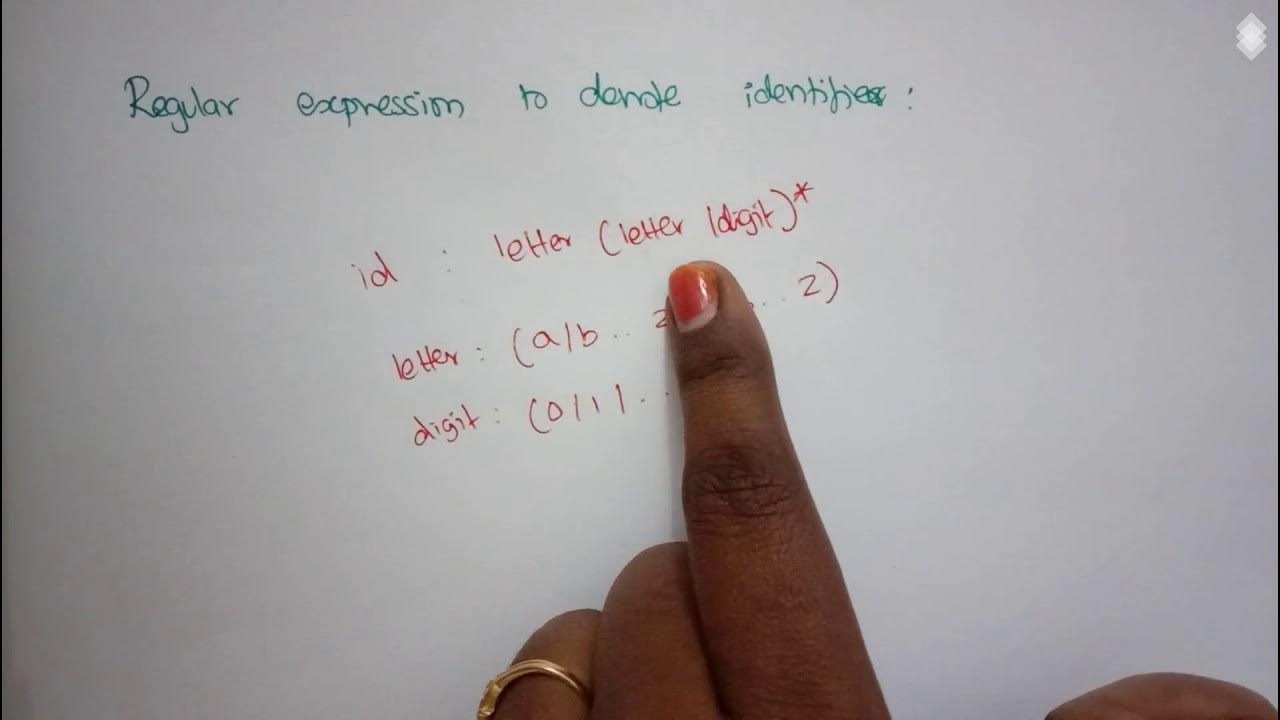 Regular expression to denote identifier :
id : letter (letter |digit)*
letter : (a/b .. z ... z)
digit : (0/1/ ..